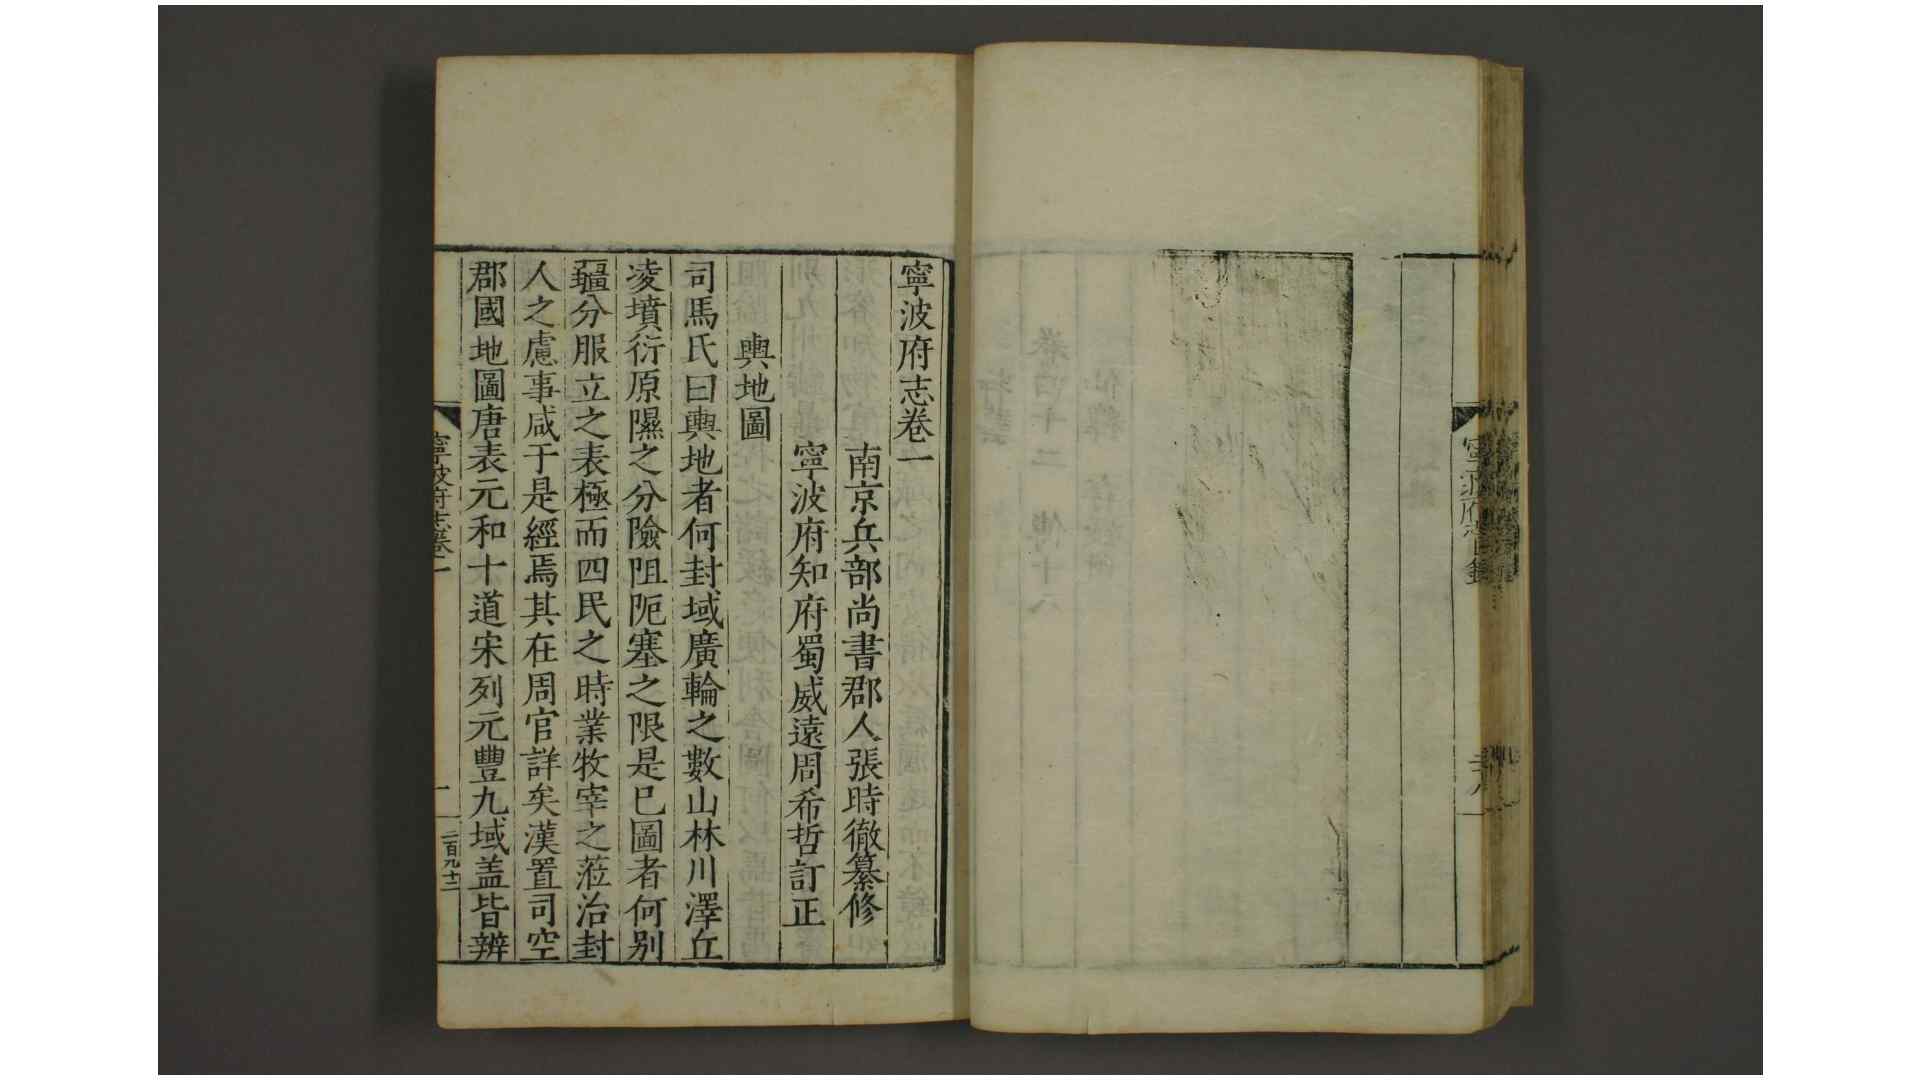 寧波府志卷一
南京兵部尚書郡人張時徹纂修
寧波府知府蜀威遠周希哲訂正
輿地圖
司馬氏曰輿地者何封域廣輪之數山林川澤丘
凌墳衍原隰之分險阻阨塞之限是巳圖者何别
疆分服立之表極而四民之時業牧宰之蒞治封
人之慮事咸于是經焉其在周官詳矣漢置司空
郡國地圖唐表元和十道宋列元豐九域盖皆辨
寧波府志卷一
一
二百九十二